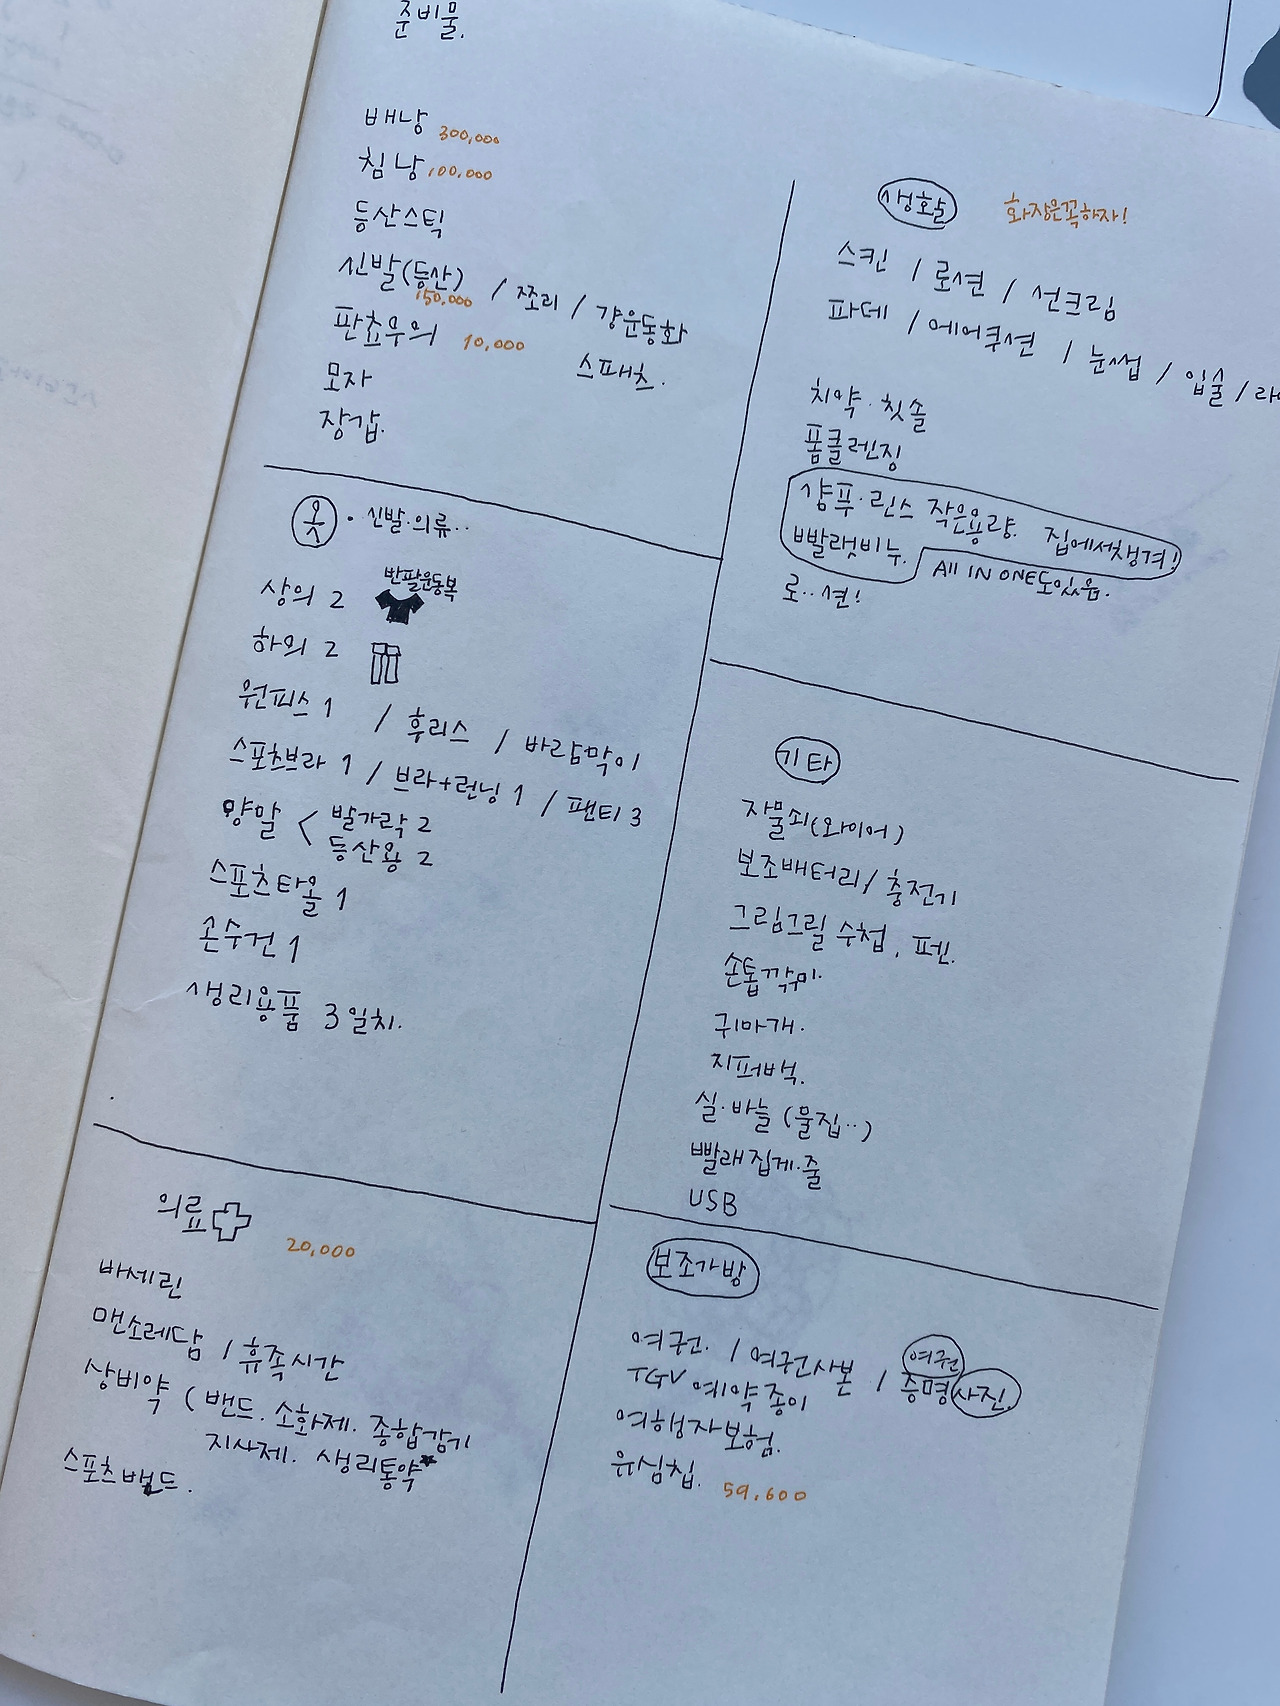 준비물.
배낭 300,000
침낭 100,000
등산스틱
신발(등산) / 쪼리 / 걍운동화
150,000
판쵸우의 10,000 스패츠.
모자
장갑.
옷 · 신발·의류..
반팔운동복
상의 2
하의 2
원피스 1 / 후리스 / 바람막이
스포츠브라 1 / 브라+런닝 1 / 팬티 3
양말 < 발가락 2
등산용 2
스포츠타올 1
손수건 1
생리용품 3일치.
의료
20,000
바세린
맨소레담 / 휴족시간
상비약 ( 밴드. 소화제. 종합감기
지사제. 생리통약
스포츠밴드.
생활 화장은꼭하자!
스킨 / 로션 / 선크림
파데 / 에어쿠션 / 눈썹 / 입술 /
치약·칫솔
폼클렌징
샴푸·린스 작은용량. 집에서챙겨!
빨랫비누. All IN ONE도있음.
로..션!
기타
자물쇠(와이어)
보조배터리/ 충전기
그림그릴 수첩, 펜.
손톱깎이.
귀마개.
지퍼백.
실·바늘 (물집..)
빨래집게·줄
USB
보조가방
여권. / 여권사본 / 여권
증명사진.
TGV 예약종이
여행자보험.
유심칩. 59,600